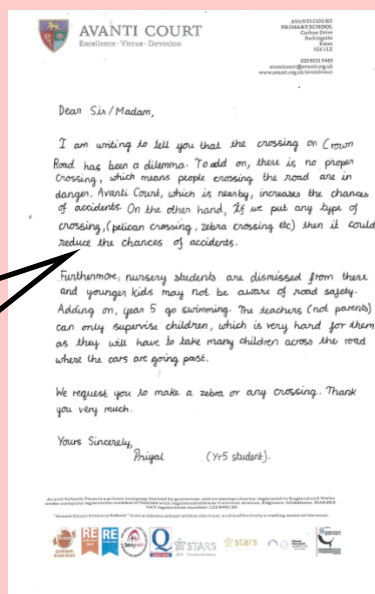 AVANTI COURT
Excellence · Virtue · Devotion
AVANTI COURT
PRIMARY SCHOOL
Carlton Drive
Barkingside
Essex
IG6 1LZ
www.avanti.org.uk/avanticourt
Dear Sir/Madam,
I am writing to tell you that the crossing on Crown
Road has been a dilemma. To add on, there is no proper
crossing, which means people crossing the road are in
danger. Avanti Court, which is nearby, increases the chances
of accidents. On the other hand, If we put any type of
crossing,(pelican crossing, zebra crossing etc) then it could
reduce the chances of accidents.
Furthermore, nursery students are dismissed from there
and younger kids may not be aware of road safety.
Adding on, year 5 go swimming. The teachers (not parents)
can only supervise children, which is very hard for them
as they will have to take many children across the road
where the cars are going past.
We request you to make a zebra or any crossing. Thank
you very much.
Yours Sincerely,
Priyal (Yr5 student).
RE RE Q STARS stars